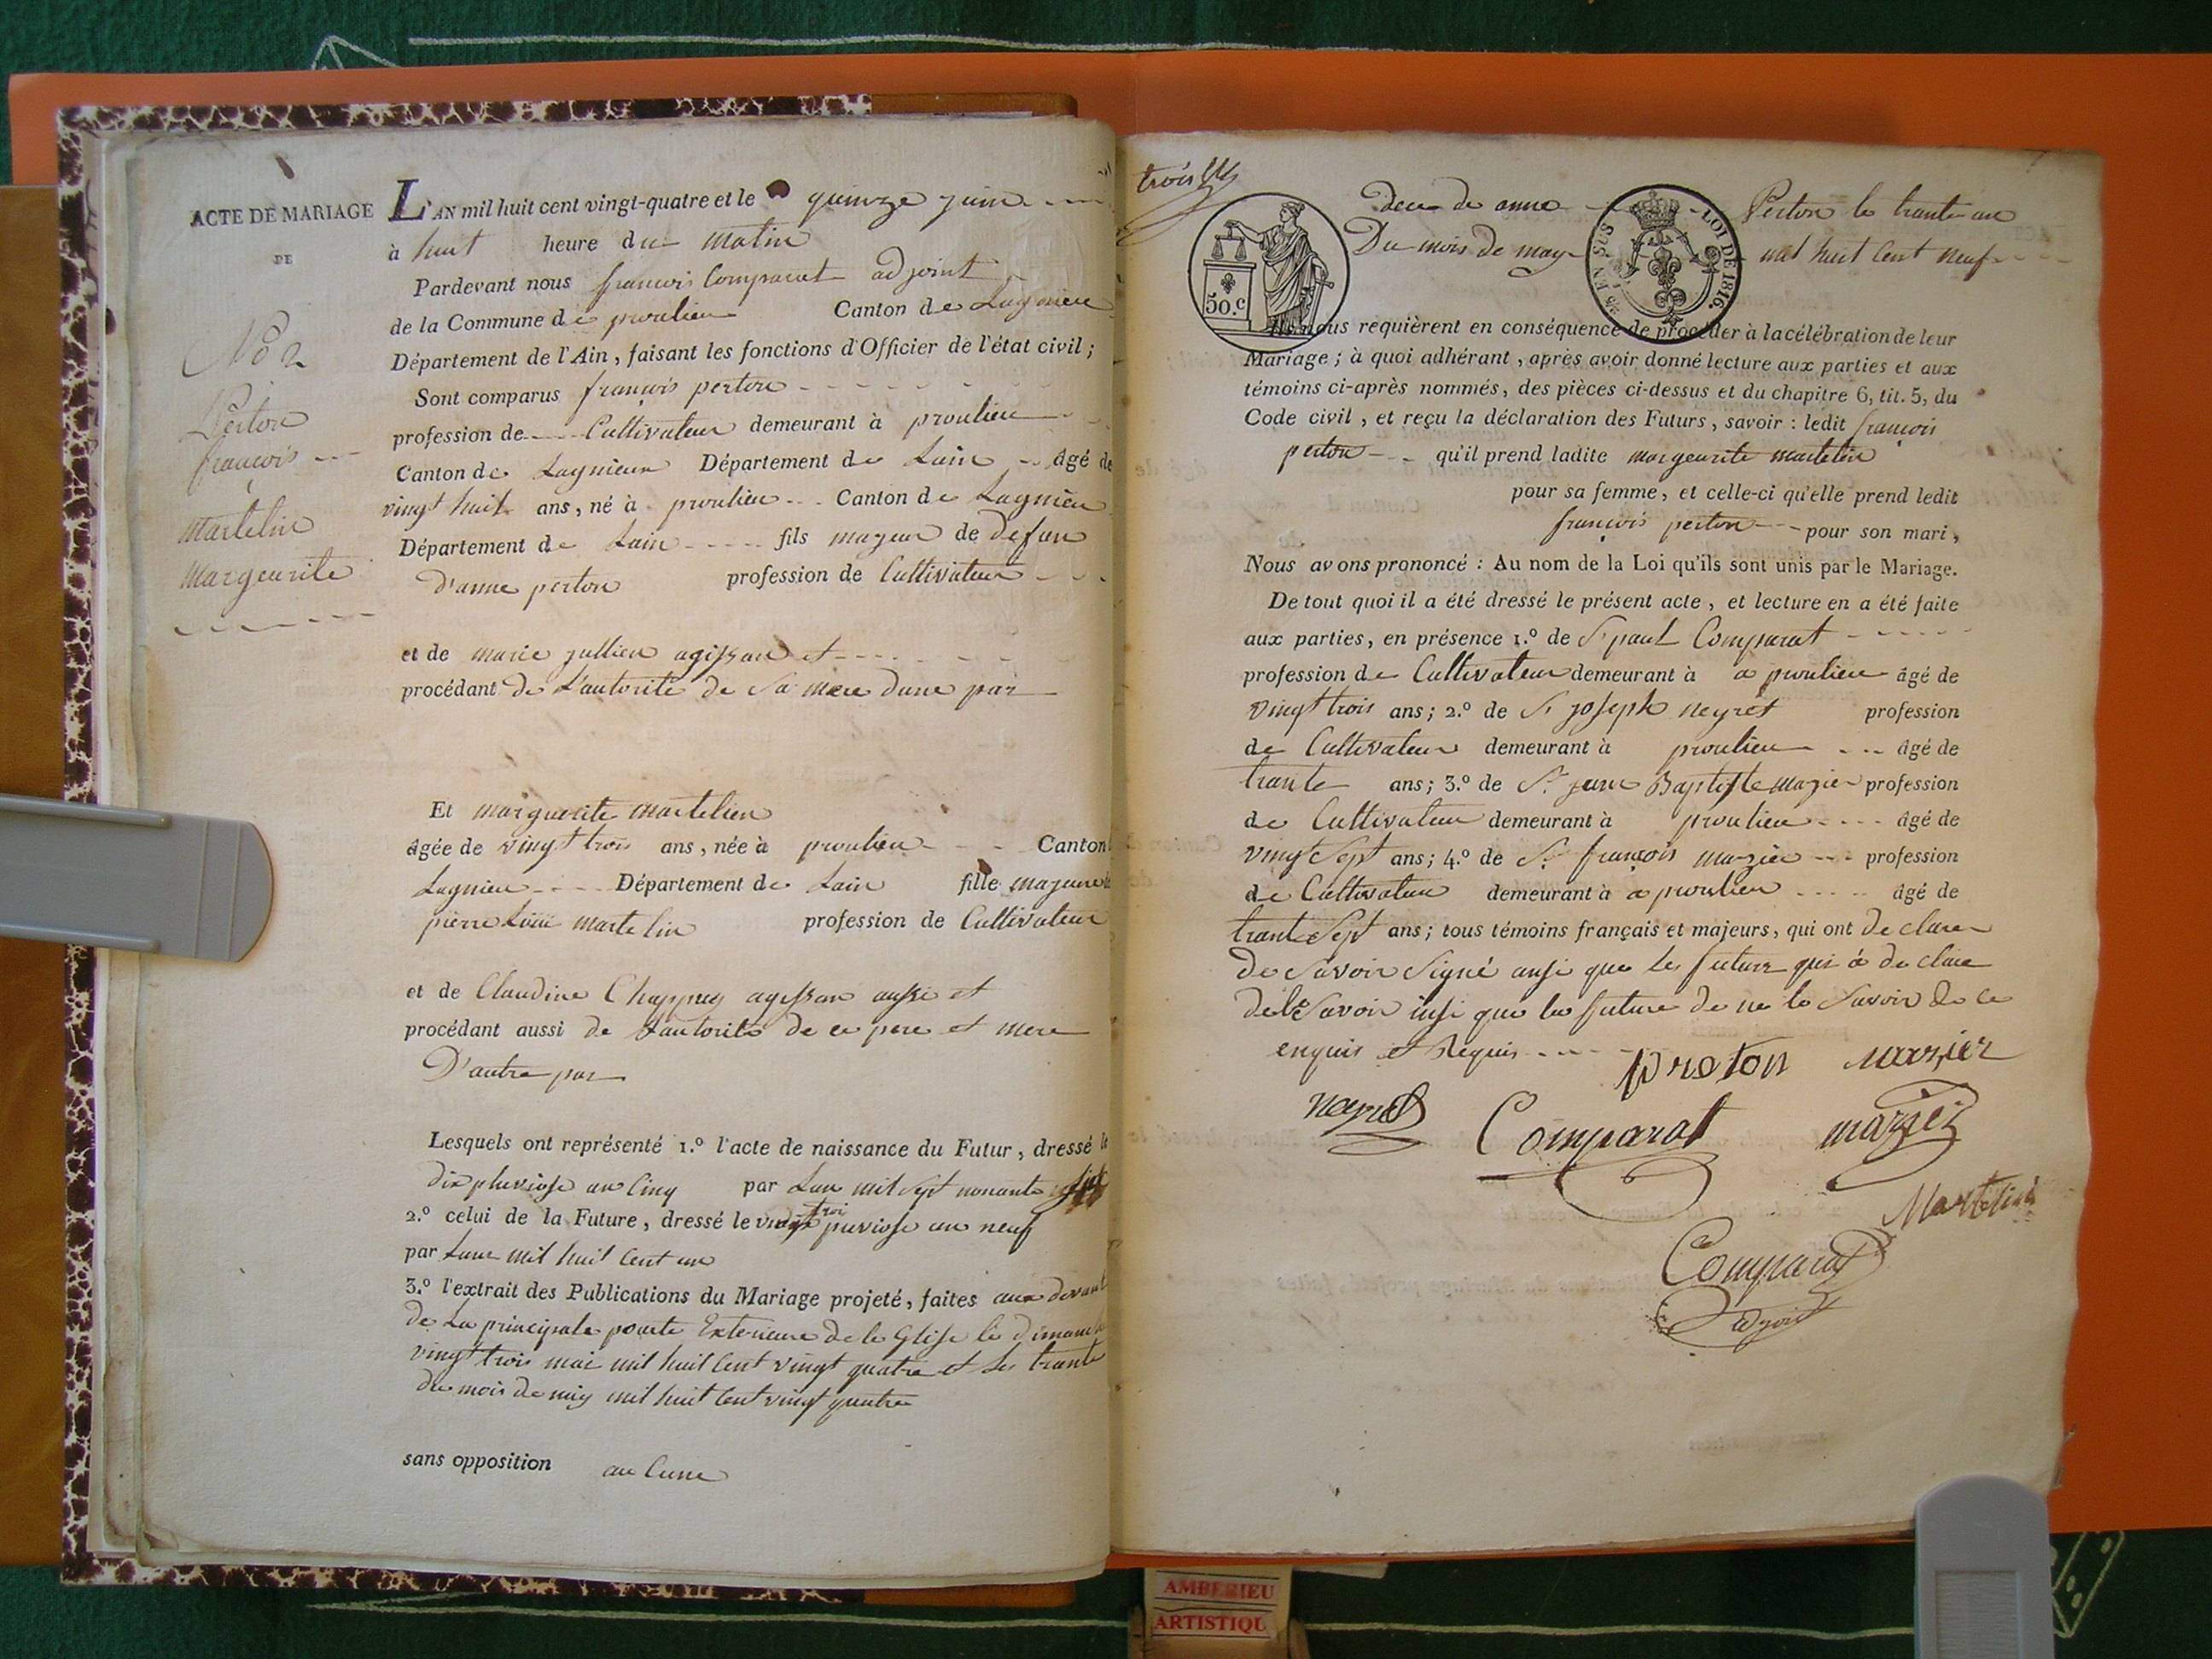 ACTE DE MARIAGE
DE
No 2
Perton
françois
Martelin
Margeurite
L'AN mil huit cent vingt-quatre et le quinze juin
à huit heure du matin
Pardevant nous francois Comparat adjoint
de la Commune de proulieu Canton de Lagnieu
Département de l'Ain, faisant les fonctions d'Officier de l'état civil;
Sont comparus françois perton
profession de Cultivateur demeurant à proulieu
Canton de Lagnieu Département de Lain âgé de
vingt huit ans, né à proulieu Canton de Lagnieu
Département de Lain fils majeur de defun
d'anne perton profession de Cultivateur
et de marie jullien agissan et
procédant de L'autorité de Sa mere dune par
Et marguerite martelin
âgée de vingt trois ans, née à proulieu Canton
Lagnieu Département de Lain fille majeure
pierre Loui martelin profession de Cultivateur
et de Claudine Chappuy agissan aussi et
procédant aussi de Lautorité de ce pere et mere
D'autre par
Lesquels ont représenté 1.º l'acte de naissance du Futur, dressé le
dix pluviose an Cinq par Lan mil Sept nonante sept
2.º celui de la Future, dressé le vingt troi pluviose an neuf
par Lan mil huit Cent un
3.º l'extrait des Publications du Mariage projeté, faites aux devant
de La principale pourte Exterieure de le Glise le dimanche
vingt trois mai mil huit Cent vingt quatre et les trante
du mois de may mil huit Cent vingt quatre
sans opposition au Cune
trois
50.c
LOI DE 1816.
EN SUS
Deces de anne Perton le trante un
Du mois de may mil huit Cent neuf
Ils nous requièrent en conséquence de procéder à la célébration de leur
Mariage; à quoi adhérant, après avoir donné lecture aux parties et aux
témoins ci-après nommés, des pièces ci-dessus et du chapitre 6, tit. 5, du
Code civil, et reçu la déclaration des Futurs, savoir : ledit françois
perton qu'il prend ladite margeurite martelin
pour sa femme, et celle-ci qu'elle prend ledit
françois perton pour son mari,
Nous avons prononcé : Au nom de la Loi qu'ils sont unis par le Mariage.
De tout quoi il a été dressé le présent acte, et lecture en a été faite
aux parties, en présence 1.º de Sr paul Comparat
profession de Cultivateur demeurant à a proulieu âgé de
vingt trois ans; 2.º de Sr joseph neyret profession
de Cultivateur demeurant à proulieu âgé de
trante ans; 3.º de Sr jean Baptiste mazier profession
de Cultivateur demeurant à proulieu âgé de
vingt Sept ans; 4.º de Sr françois mazier profession
de Cultivateur demeurant à a proulieu âgé de
trante Sept ans; tous témoins français et majeurs, qui ont de clarer
de Savoir Signé ansi que les future qui à de clare
de le Savoir insi que la future de ne le Savoir de ce
enquis et Requis
proton mazier
neyret Comparat mazier
Martelin
Comparat
adjoint
AMBERIEU
ARTISTIQU